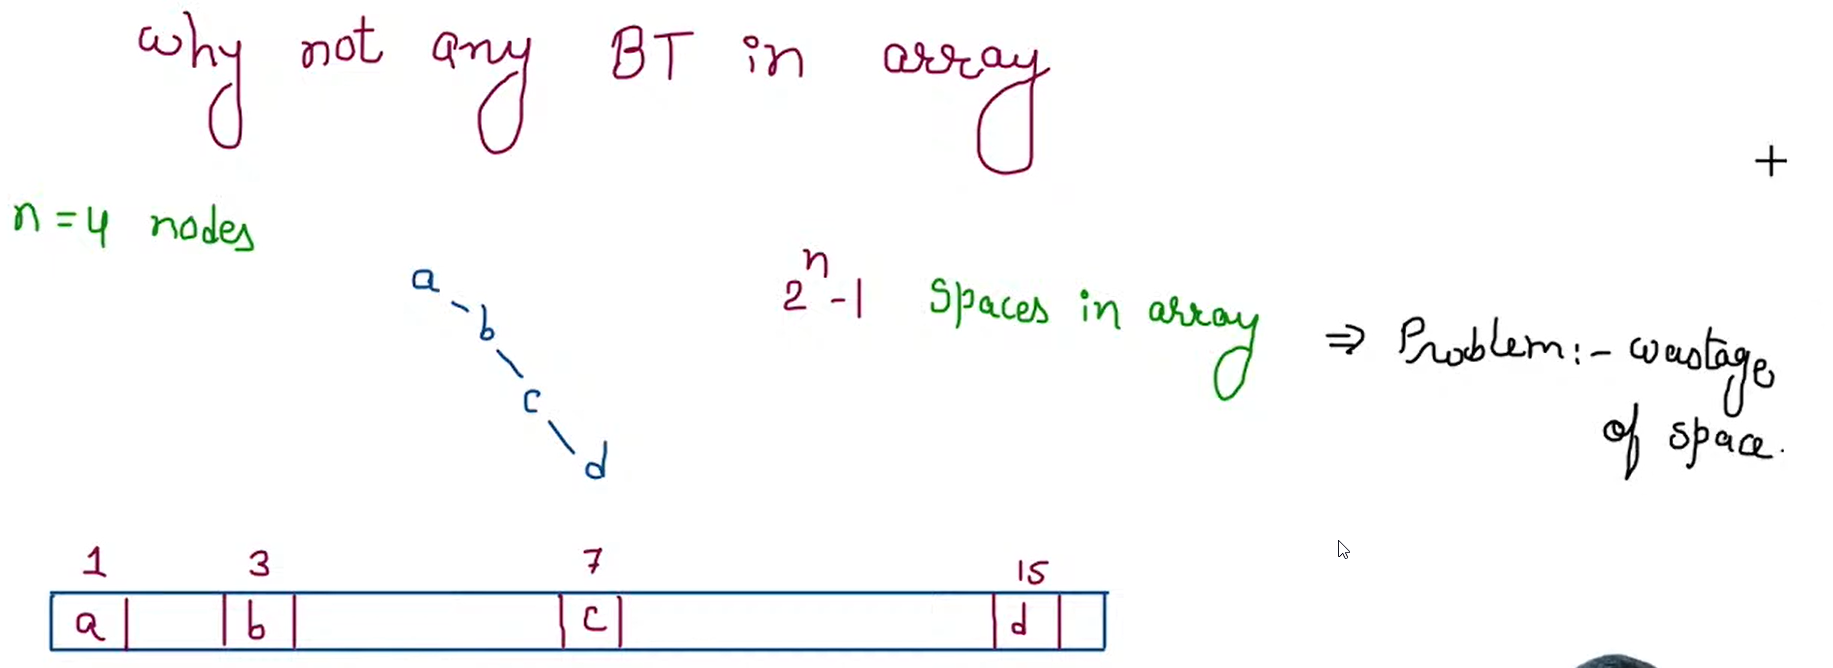 why not any BT in array
n = 4 nodes
a
b
c
d
2^n - 1 Spaces in array
⇒ Problem :- wastage
of space.
1 3 7 15
a b c d